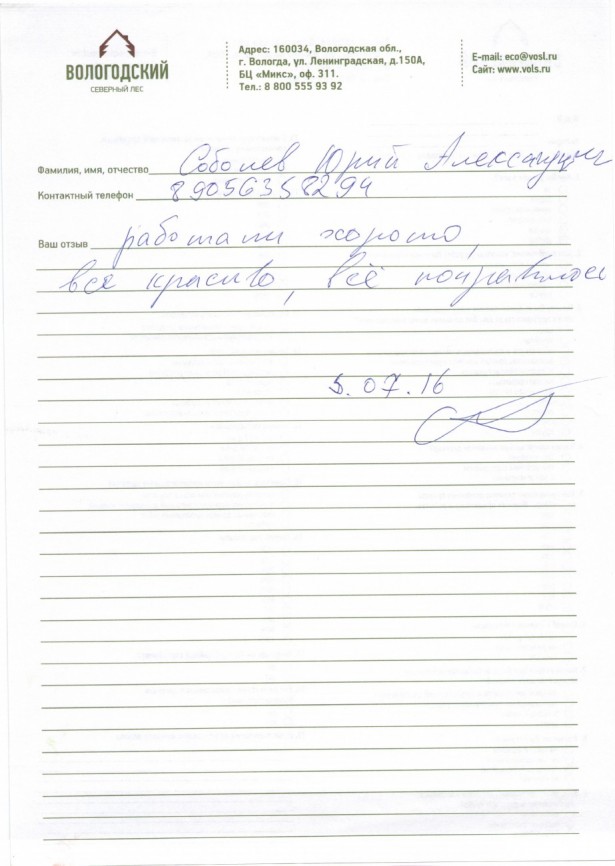 ВОЛОГОДСКИЙ
СЕВЕРНЫЙ ЛЕС
Адрес: 160034, Вологодская обл.,
г. Вологда, ул. Ленинградская, д.150А,
БЦ «Микс», оф. 311.
Тел.: 8 800 555 93 92
E-mail: eco@vosl.ru
Сайт: www.vols.ru
Фамилия, имя, отчество Соболев Юрий Александрович
Контактный телефон 89056358294
Ваш отзыв работали хорошо,
все красиво, всё понравилось
5.07.16